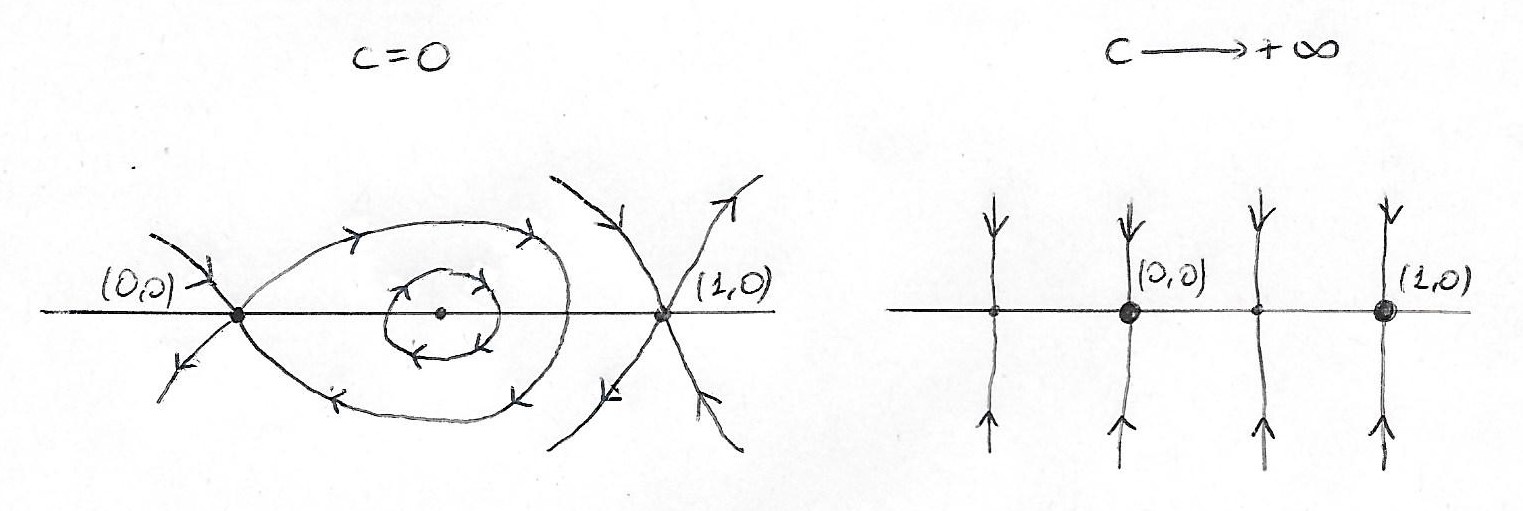 C=0
C⟶+∞
(0,0)
(1,0)
(0,0)
(1,0)